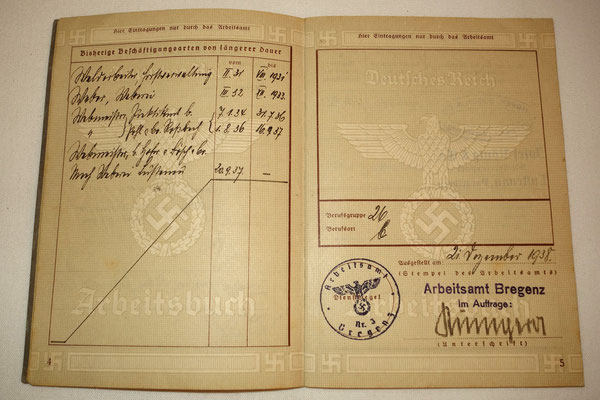 Hier Eintragungen nur durch das Arbeitsamt
Bisherige Beschäftigungsarten von längerer Dauer
vom bis
Waldarbeiter, Forstverwaltung II. 31 VIII. 1931
Weber, Weberei III. 32 XII. 1933.
Webmeister, Praktikant b. 7.1.34 31.7.36
" 1.8.36 16.9.37
Webmeister, b.
Mech Weberei Lustenau 20.9.37 —
Arbeitsbuch
4
Hier Eintragungen nur durch das Arbeitsamt
Deutsches Reich
Berufsgruppe 26
Berufsart
Ausgestellt am: 21. Dezember 1938.
(Stempel des Arbeitsamts)
Arbeitsamt Bregenz
im Auftrage:
(Unterschrift)
Arbeitsamt
Dienstsiegel
Nr. 3
Bregenz
5